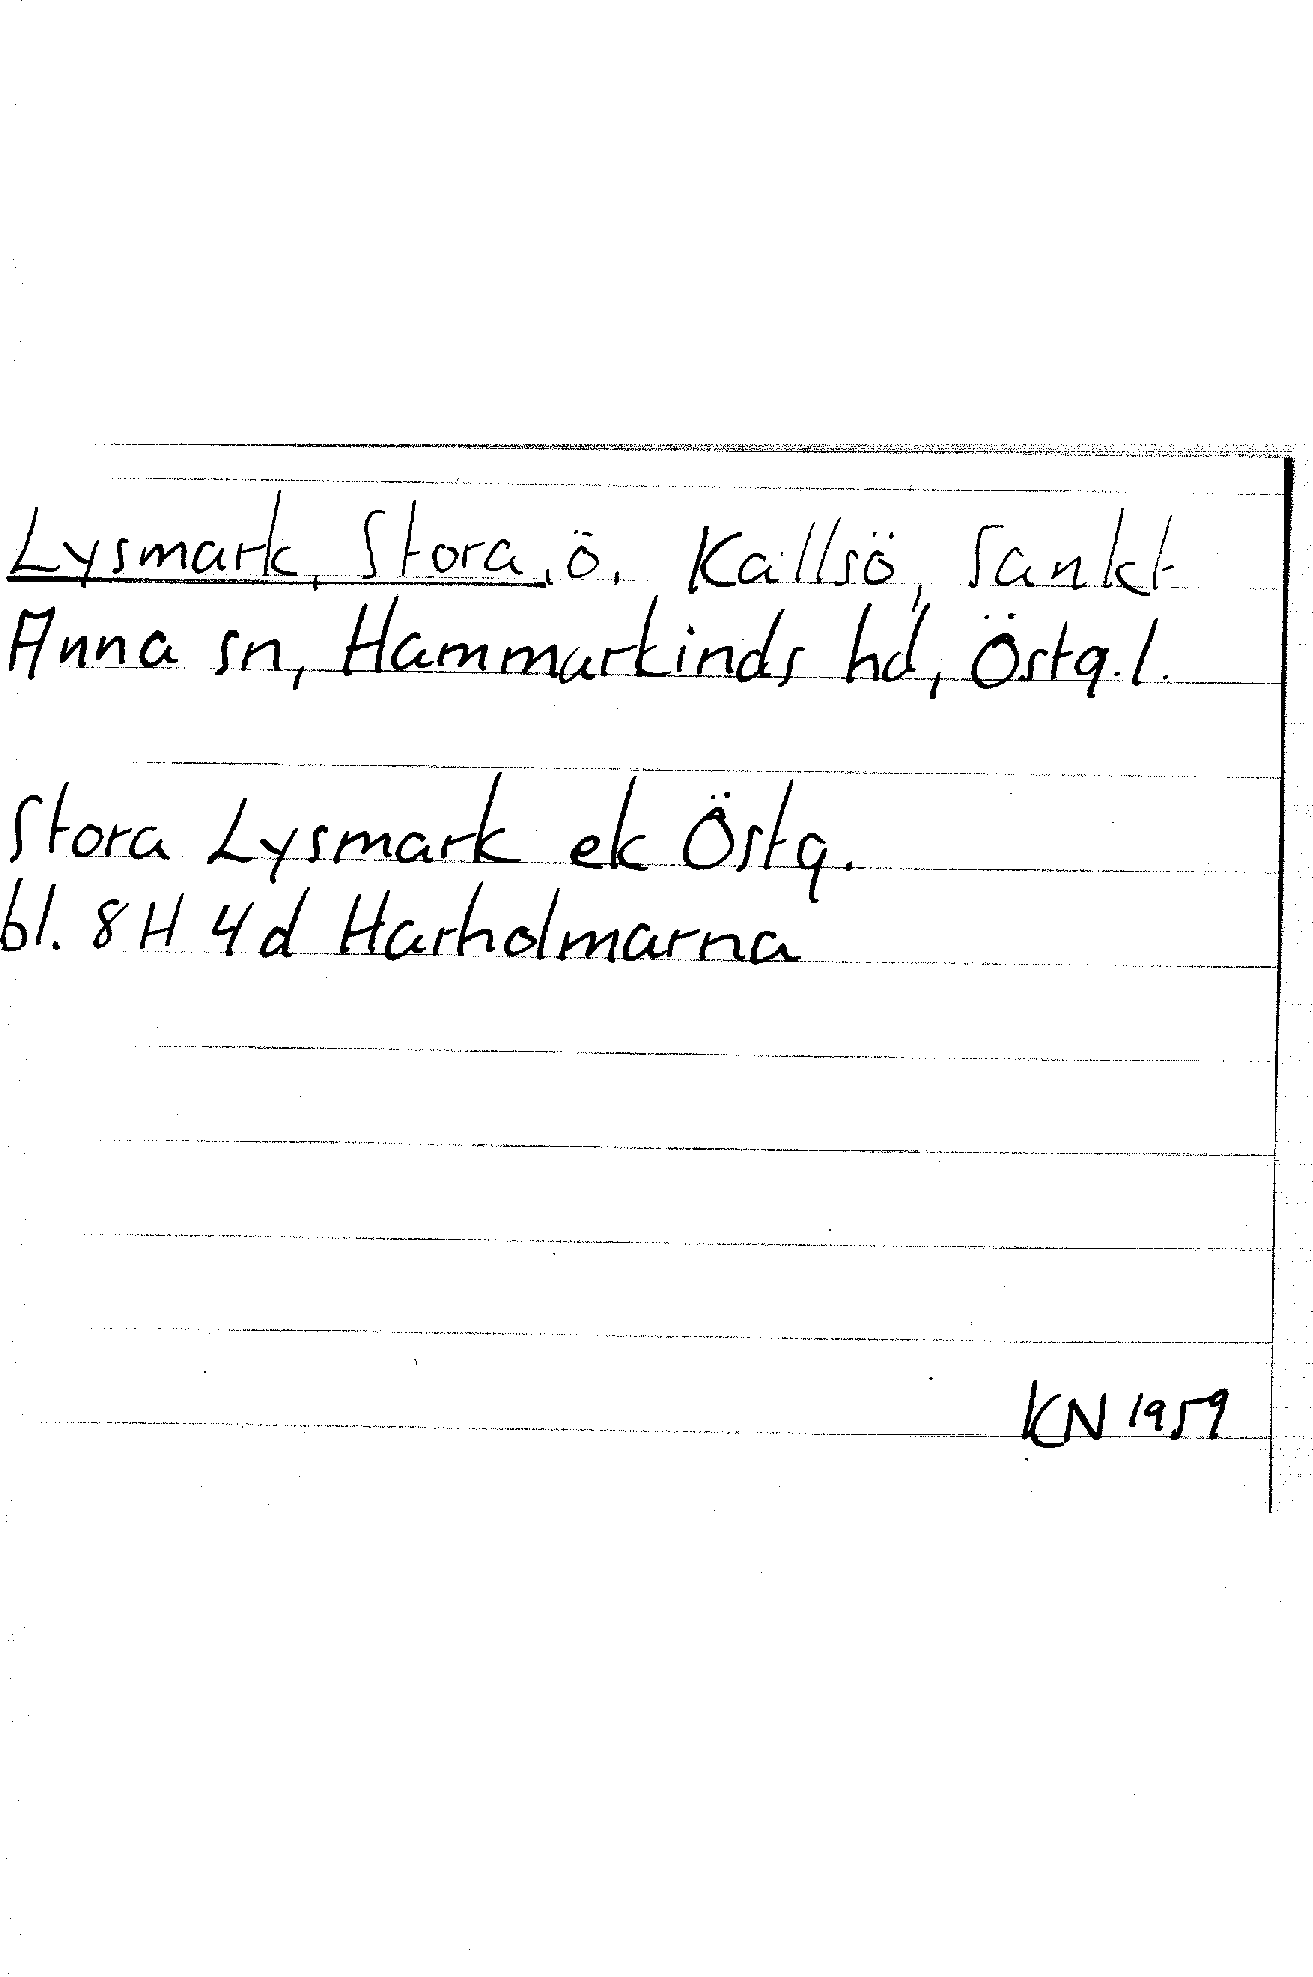 Lysmark, Stora, ö. Kallsö, Sankt
Anna sn, Hammarkinds hd, Östg.l.
Stora Lysmark ek Östg.
bl. 8H 4d Harholmarna
KN 1959